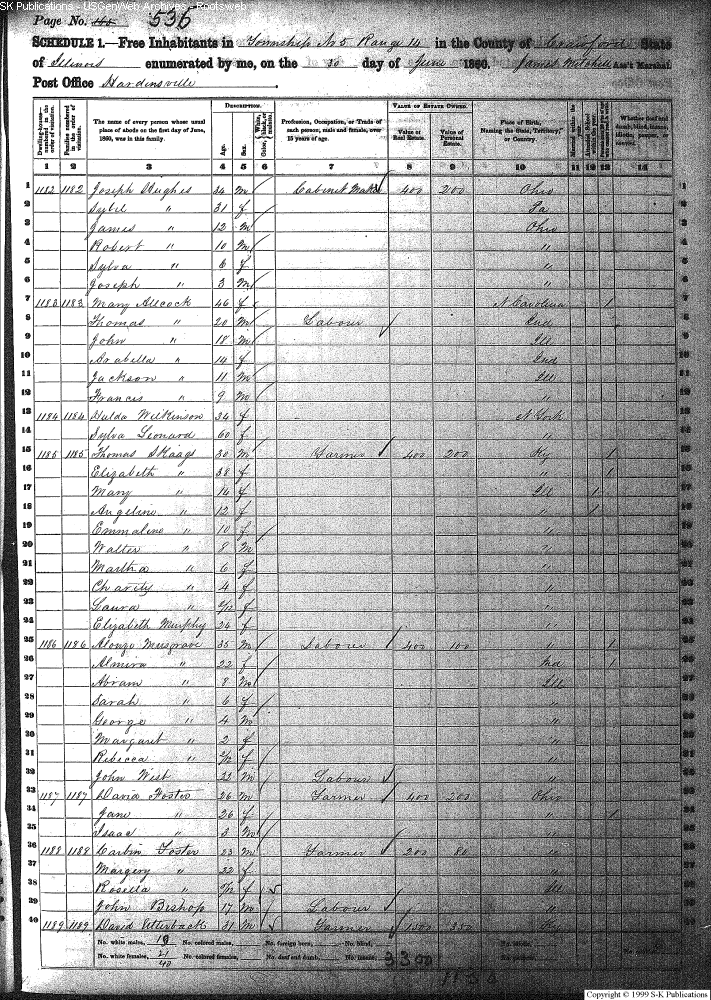 SK Publications - USGenWeb Archives - Rootsweb
Page No. 536
SCHEDULE 1.—Free Inhabitants in Township No 5 Range 14 in the County of Crawford State
of Illinois enumerated by me, on the 30 day of June 1860. James Mitchell Ass't Marshal.
Post Office Hardinsville
Dwelling-houses—numbered in the order of visitation.
Families numbered in the order of visitation.
The name of every person whose usual place of abode on the first day of June, 1860, was in this family.
DESCRIPTION.
Age.
Sex.
Color, White, black, or mulatto.
Profession, Occupation, or Trade of each person, male and female, over 15 years of age.
VALUE OF ESTATE OWNED.
Value of Real Estate.
Value of Personal Estate.
Place of Birth, Naming the State, Territory, or Country.
Whether deaf and dumb, blind, insane, idiotic, pauper, or convict.
1 2 3 4 5 6 7 8 9 10 11 12 13 14
1 1182 1182 Joseph Hughes 34 m Cabinet Maker 400 200 Ohio 1
2 Sybil " 31 f Pa 2
3 James " 12 m Ohio 3
4 Robert " 10 m " 4
5 Sylva " 6 f " 5
6 Joseph " 3 m " 6
7 1183 1183 Mary Allcock 46 f N Carolina 1 7
8 Thomas " 20 m Labour Ind 8
9 John " 18 m Ill 9
10 Arabella " 14 f Ind 10
11 Jackson " 11 m Ill 11
12 Francis " 9 m " 12
13 1184 1184 Hulda Wilkinson 34 f N York 13
14 Sylva Leonard 60 f " 14
15 1185 1185 Thomas Skaggs 30 m Farmer 400 200 Ky 1 15
16 Elizabeth " 38 f " 1 16
17 Mary " 14 f Ill 1 17
18 Angeline " 12 f " 1 18
19 Emmaline " 10 f " 19
20 Walter " 8 m " 20
21 Martha " 6 f 21
22 Charity " 4 f " 22
23 Laura " /12 f 23
24 Elizabeth Murphy 24 f 24
25 1186 1186 Alonzo Musgrave 35 m Labour 400 100 " 1 25
26 Almira " 22 f Ind 1 26
27 Abram " 8 m Ill 27
28 Sarah " 6 f " 28
29 George " 4 m " 29
30 Margaret " 2 f 30
31 Rebecca " /12 f " 31
32 John West 22 m Labour " 32
33 1187 1187 David Foster 26 m Farmer 400 200 Ohio 33
34 Jane " 26 f " 1 34
35 Isaac " 3 m " 35
36 1188 1188 Corbin Foster 23 m Farmer 200 80 " 36
37 Margery " 22 f 37
38 Rosella " /12 f Ill 38
39 John Bishop 17 m Labour " 39
40 1189 1189 David Utterback 31 m Farmer 350 Ky 40
No. white males, 19 No. colored males, No. foreign born, No. blind,
No. white females, 21 No. colored females, No. deaf and dumb, No. insane,
40
3300
Copyright © 1999 S-K Publications